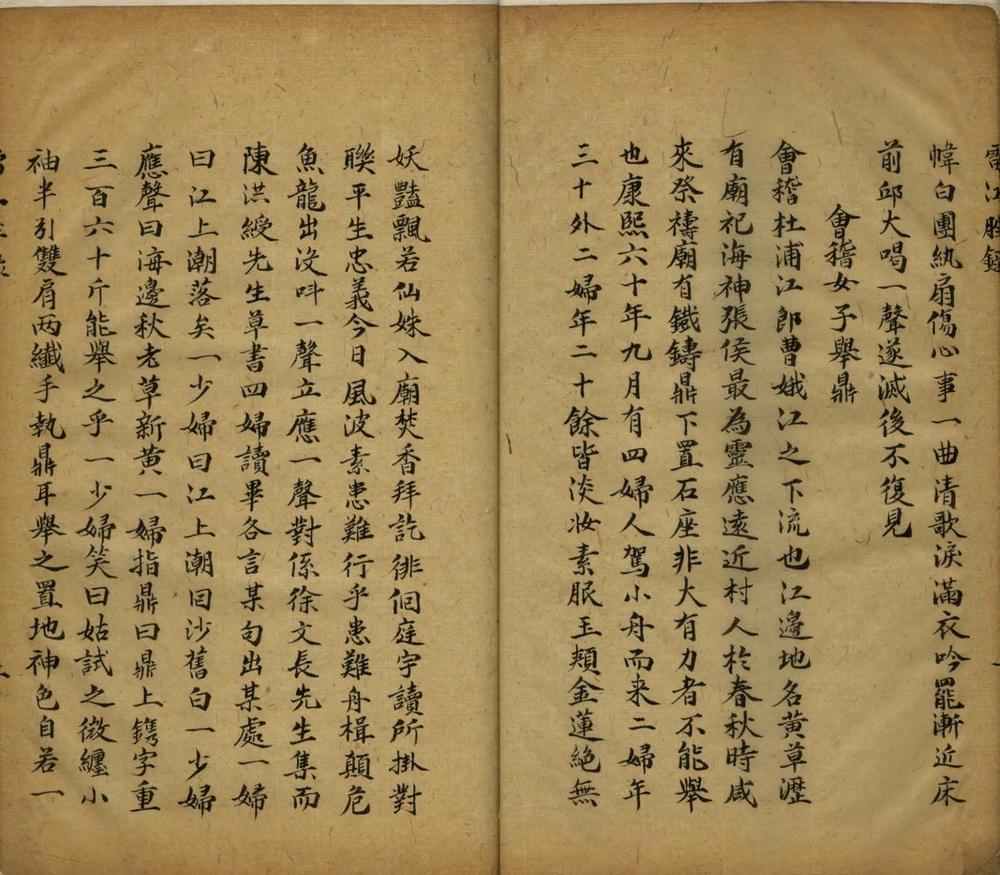 幃白團紈扇傷心事一曲清歌淚滿衣吟罷漸近床
前邱大喝一聲遂滅後不復見
會稽女子舉鼎
會稽杜浦江即曹娥江之下流也江邊地名黃草瀝
有廟祀海神張侯最為靈應遠近村人於春秋時咸
來祭禱廟有鐵鑄鼎下置石座非大有力者不能舉
也康熙六十年九月有四婦人駕小舟而来二婦年
三十外二婦年二十餘皆淡妝素服玉頰金蓮絕無
妖豔飄若仙姝入廟焚香拜訖徘徊庭宇讀所掛對
聯平生忠義今日風波素患難行乎患難舟楫顛危
魚龍出沒呌一聲立應一聲對係徐文長先生集而
陳洪綬先生草書四婦讀畢各言某句出某處一婦
曰江上潮落矣一少婦曰江上潮回沙舊白一少婦
應聲曰海邊秋老草新黃一婦指鼎曰鼎上鐫字重
三百六十斤能舉之乎一少婦笑曰姑試之微纏小
袖半引雙肩兩纖手執鼎耳舉之置地神色自若一